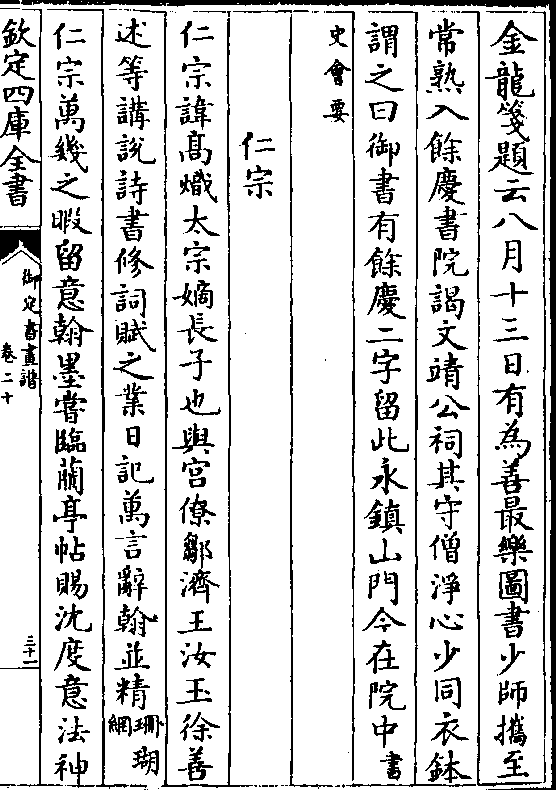 金龍箋題云八月十三日有為善最樂圖書少師攜至
常熟入餘慶書院謁文靖公祠其守僧淨心少同衣鉢
謂之曰御書有餘慶二字留此永鎮山門今在院中書
史會要
仁宗
仁宗諱高熾太宗嫡長子也與宮僚鄒濟王汝玉徐善
述等講說詩書修詞賦之業日記萬言辭翰並精珊瑚
網
仁宗萬幾之暇留意翰墨嘗臨蘭亭帖賜沈度意法神
欽定四庫全書
御定書畫譜
卷二十
三十一